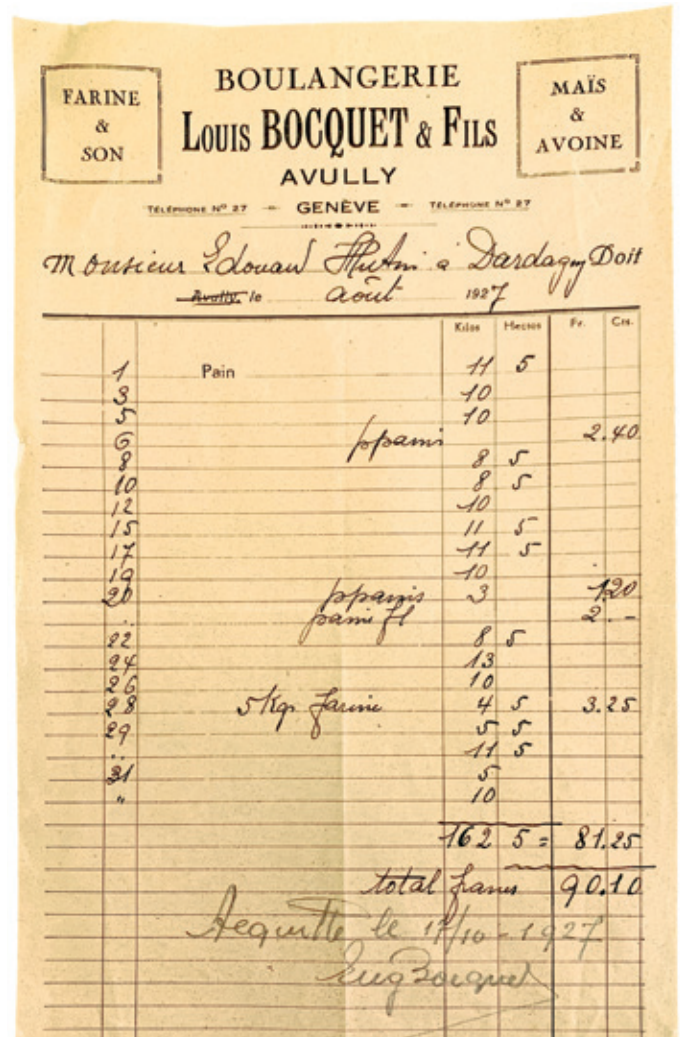 FARINE & SON
BOULANGERIE
MAÏS & AVOINE
LOUIS BOCQUET & FILS
AVULLY
TÉLÉPHONE Nº 27 GENÈVE TÉLÉPHONE Nº 27
Monsieur Edouard Hutin à Dardagny Doit
Avully, le août 1927
Kilos Hectos Fr. Cts.
1 Pain 11 5
3 10
5 10
6 ppains 2.40
8 8 5
10 8 5
12 10
15 11 5
17 11 5
19 10
20 ppains 3 1.20
.. pains fl 2.-
22 8 5
24 13
26 10
28 5 Kgs farine 4 5 3.25
29 5 5
.. 11 5
31 5
" 10
162 5 = 81.25
total francs 90.10
Acquitté le 17/10-1927
Eug Bocquet